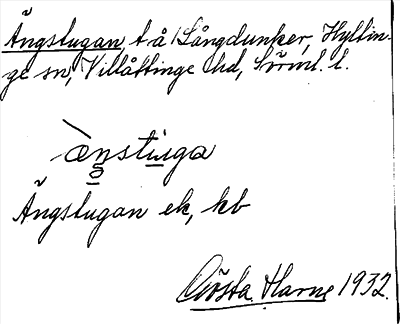 Ängstugan, t å Långdunker, Hyltin-
ge sn, Villåttinge hd, Sörml. l.
ænstuga
Ängstugan ek, kb
Gösta Harne 1932.